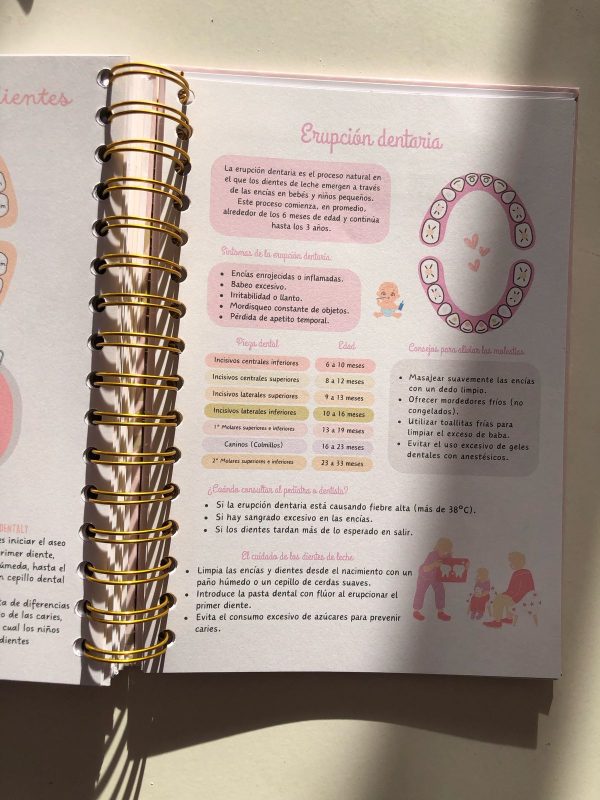 dientes
DENTAL?
es iniciar el aseo
rimer diente,
úmeda, hasta el
n cepillo dental
ta de diferencias
o de las caries,
cual los niños
dientes
Erupción dentaria
La erupción dentaria es el proceso natural en
el que los dientes de leche emergen a través
de las encías en bebés y niños pequeños.
Este proceso comienza, en promedio,
alrededor de los 6 meses de edad y continúa
hasta los 3 años.
Síntomas de la erupción dentaria
• Encías enrojecidas o inflamadas.
• Babeo excesivo.
• Irritabilidad o llanto.
• Mordisqueo constante de objetos.
• Pérdida de apetito temporal.
Pieza dental Edad
Incisivos centrales inferiores 6 a 10 meses
Incisivos centrales superiores 8 a 12 meses
Incisivos laterales superiores 9 a 13 meses
Incisivos laterales inferiores 10 a 16 meses
1° Molares superiores e inferiores 13 a 19 meses
Caninos (Colmillos) 16 a 23 meses
2° Molares superiores e inferiores 23 a 33 meses
Consejos para aliviar las molestias
• Masajear suavemente las encías
con un dedo limpio.
• Ofrecer mordedores fríos (no
congelados).
• Utilizar toallitas frías para
limpiar el exceso de baba.
• Evitar el uso excesivo de geles
dentales con anestésicos.
¿Cuándo consultar al pediatra o dentista?
• Si la erupción dentaria está causando fiebre alta (más de 38°C).
• Si hay sangrado excesivo en las encías.
• Si los dientes tardan más de lo esperado en salir.
El cuidado de los dientes de leche
• Limpia las encías y dientes desde el nacimiento con un
paño húmedo o un cepillo de cerdas suaves.
• Introduce la pasta dental con flúor al erupcionar el
primer diente.
• Evita el consumo excesivo de azúcares para prevenir
caries.